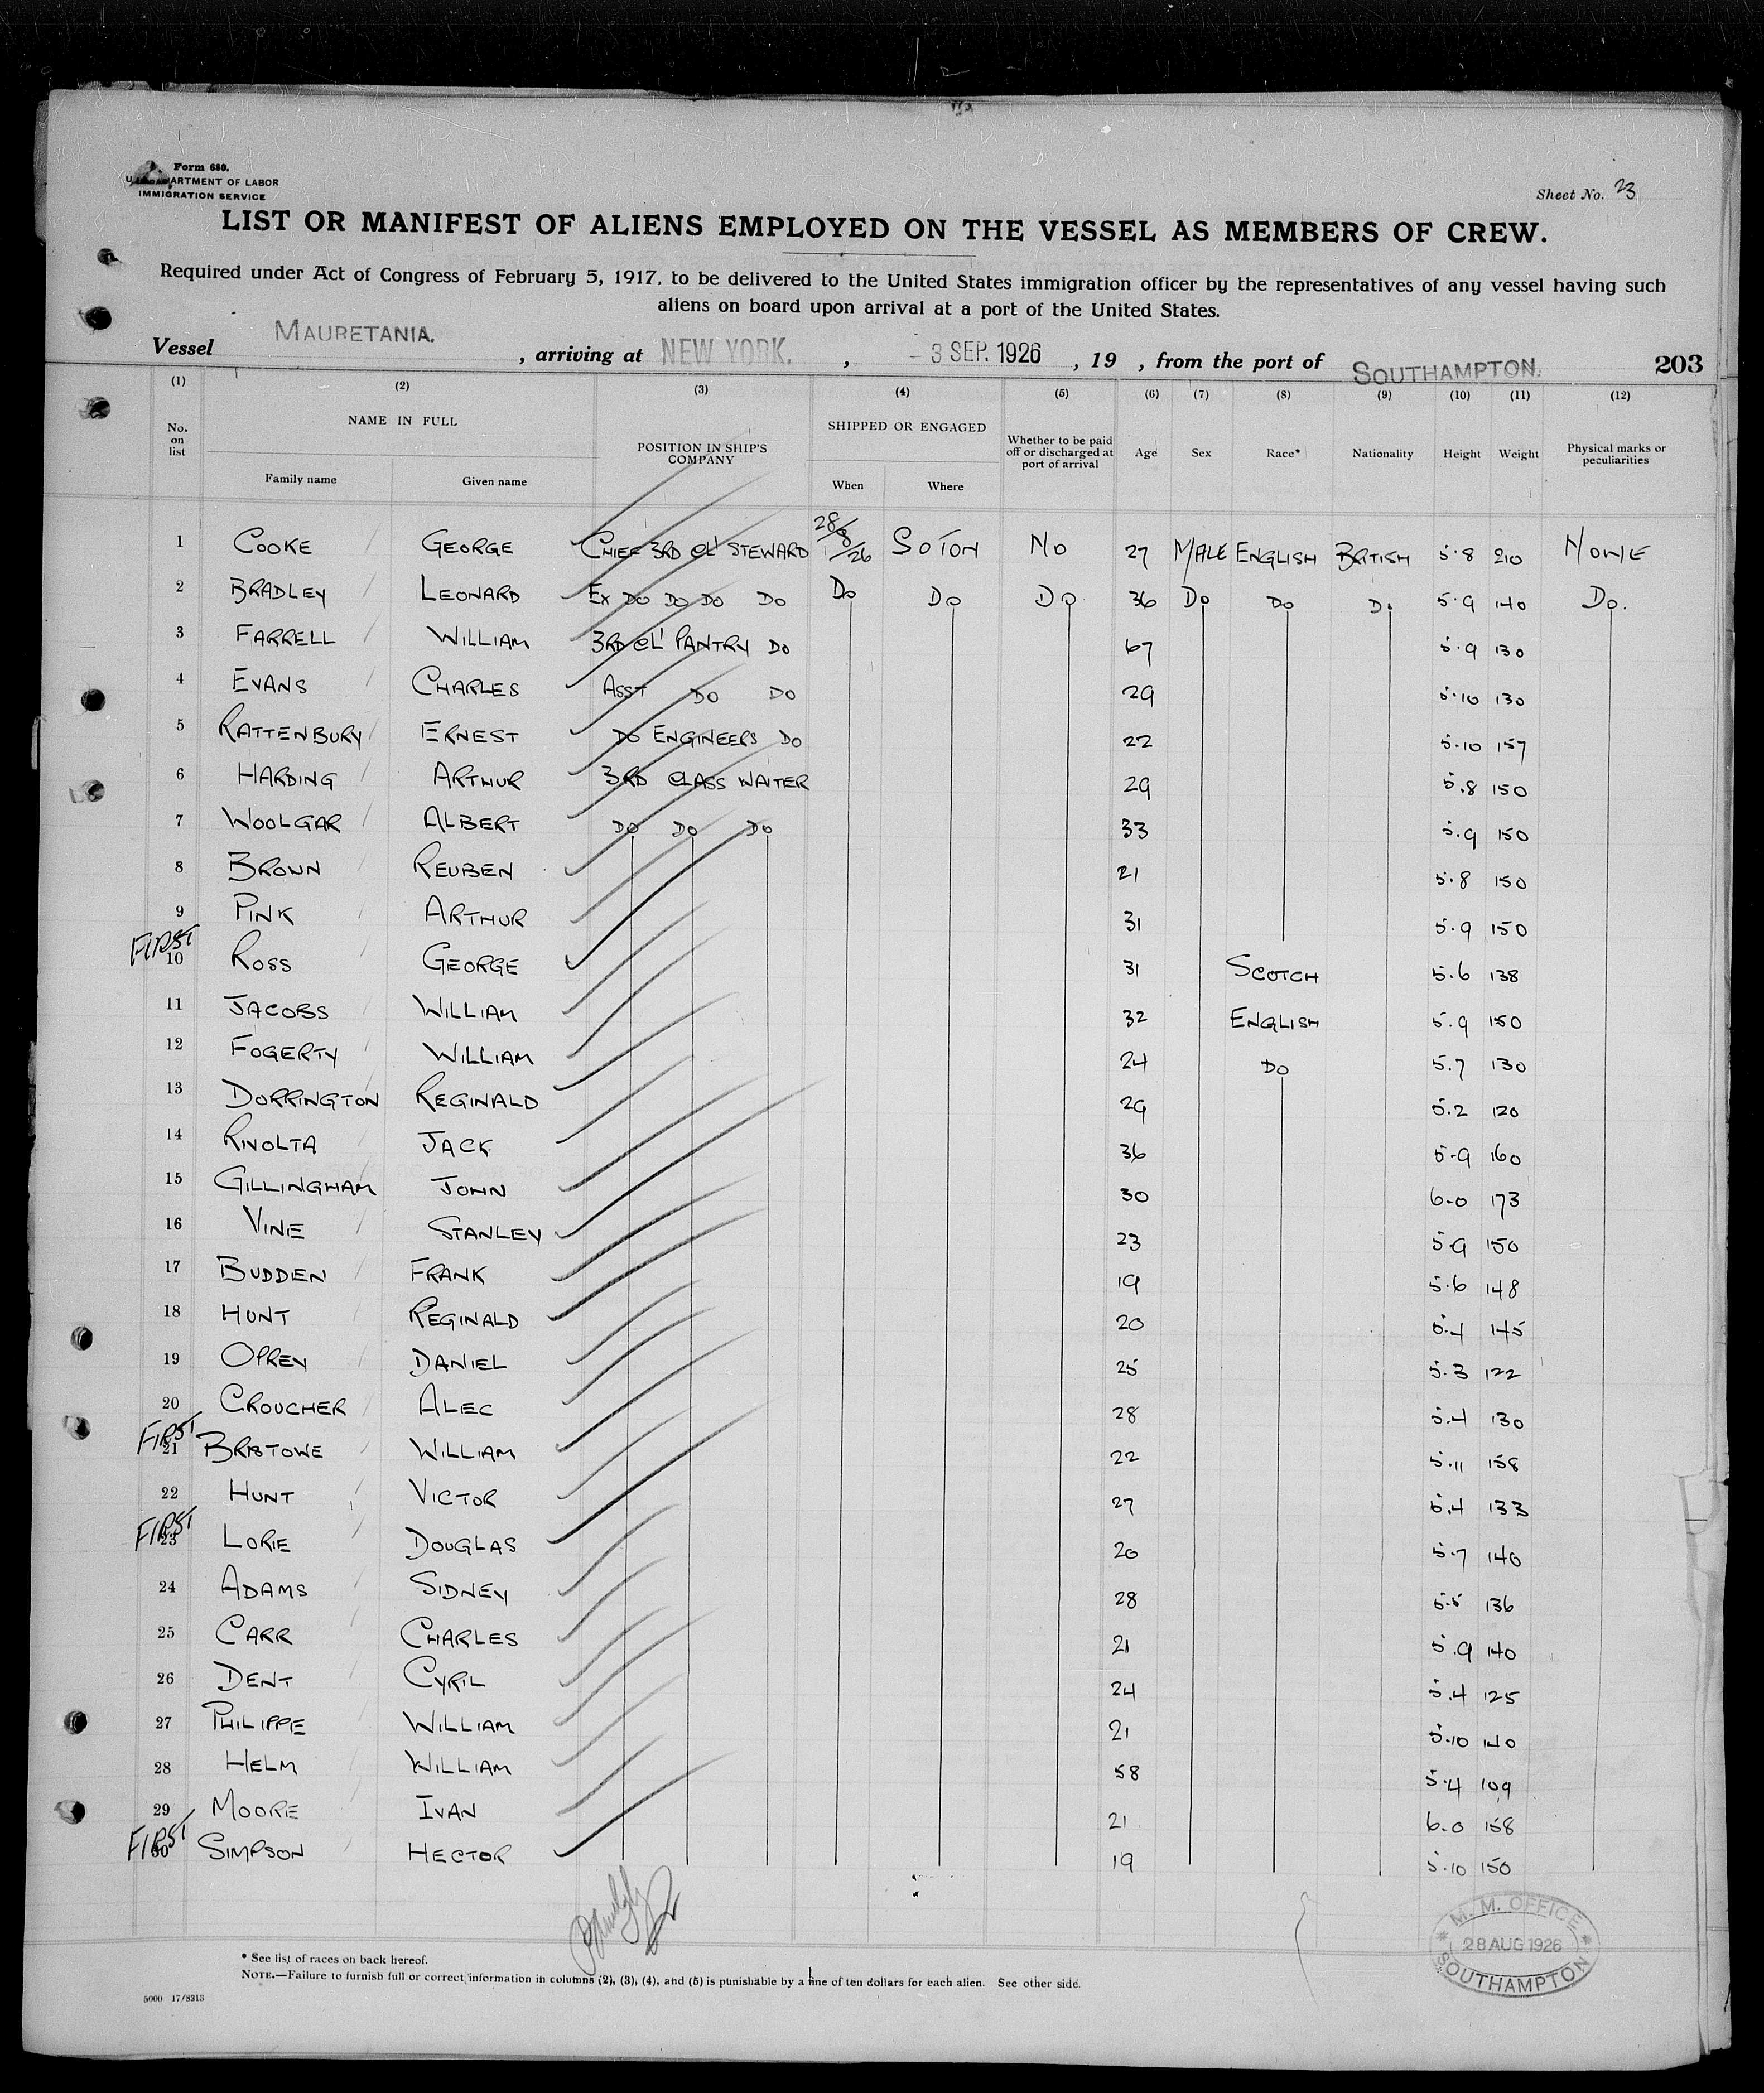 Form 680.
U. S. DEPARTMENT OF LABOR
IMMIGRATION SERVICE
Sheet No. 23
LIST OR MANIFEST OF ALIENS EMPLOYED ON THE VESSEL AS MEMBERS OF CREW.
Required under Act of Congress of February 5, 1917, to be delivered to the United States immigration officer by the representatives of any vessel having such
aliens on board upon arrival at a port of the United States.
Vessel MAURETANIA. , arriving at NEW YORK. , - 3 SEP. 1926 , 19 , from the port of SOUTHAMPTON. 203
(1) (2) (3) (4) (5) (6) (7) (8) (9) (10) (11) (12)
No. on list NAME IN FULL Family name Given name POSITION IN SHIP'S COMPANY SHIPPED OR ENGAGED When Where Whether to be paid off or discharged at port of arrival Age Sex Race* Nationality Height Weight Physical marks or peculiarities
1 COOKE GEORGE CHIEF 3RD CL' STEWARD 28/8/26 SOTON NO 27 MALE ENGLISH BRITISH 5.8 210 NONE
2 BRADLEY LEONARD EX DO DO DO DO DO DO DO 36 DO DO DO 5.9 140 DO.
3 FARRELL WILLIAM 3RD CL' PANTRY DO 67 5.9 130
4 EVANS CHARLES ASST DO DO 29 5.10 130
5 RATTENBURY ERNEST DO ENGINEERS DO 22 5.10 157
6 HARDING ARTHUR 3RD CLASS WAITER 29 5.8 150
7 WOOLGAR ALBERT DO DO DO 33 5.9 150
8 BROWN REUBEN 21 5.8 150
9 PINK ARTHUR 31 5.9 150
FIRST
10 ROSS GEORGE 31 SCOTCH 5.6 138
11 JACOBS WILLIAM 32 ENGLISH 5.9 150
12 FOGERTY WILLIAM 24 DO 5.7 130
13 DORRINGTON REGINALD 29 5.2 120
14 RIVOLTA JACK 36 5-9 160
15 GILLINGHAM JOHN 30 6-0 173
16 VINE STANLEY 23 5.9 150
17 BUDDEN FRANK 19 5.6 148
18 HUNT REGINALD 20 5.4 145
19 OPREY DANIEL 25 5.3 122
20 CROUCHER ALEC 28 5.4 130
FIRST
21 BRISTOWE WILLIAM 22 5.11 158
22 HUNT VICTOR 27 5.4 133
FIRST
23 LORIE DOUGLAS 20 5.7 140
24 ADAMS SIDNEY 28 5.5 136
25 CARR CHARLES 21 5.9 140
26 DENT CYRIL 24 5.4 125
27 PHILIPPE WILLIAM 21 5.10 140
28 HELM WILLIAM 58 5.4 109
29 MOORE IVAN 21 6.0 158
FIRST
30 SIMPSON HECTOR 19 5.10 150
M. M. OFFICE
28 AUG 1926
SOUTHAMPTON
* See list of races on back hereof.
NOTE.—Failure to furnish full or correct information in columns (2), (3), (4), and (5) is punishable by a fine of ten dollars for each alien. See other side.
5000 17/8213